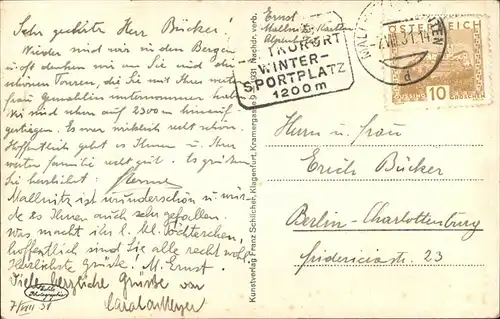 Sehr geehrter Herr Bücker!
Wieder sind wir in den Bergen
und oft denken wir an Sie und die
schönen Touren, die Sie mit Ihrer werten
Frau Gemahlin unternommen haben.
Wir sind schon auf 2300 m hinauf-
gestiegen. Es war wirklich recht schön.
Hoffentlich geht es Ihnen u. Ihrer
werten Familie recht gut. Es grüßen
Sie herzlichst
Mallnitz ist wunderschön u. wür-
de es Ihnen auch sehr gefallen.
Was macht Ihr l. Töchterchen,
hoffentlich sind Sie alle recht wohl.
Herzlichste Grüße! M. Ernst.
Viele herzliche Grüsse von
7/VIII 31
Echte
Photographie
Kunstverlag Franz Schilcher, Klagenfurt, Kramergasse 9
verb.
Ernst
Mallnitz, Kärnten
KURORT
WINTER-
SPORTPLATZ
1200m
-7.VIII.31.14
d
ÖSTERREICH
GÜSSING
10
GROSCHEN
Herrn u. Frau
Erich Bücker
Berlin-Charlottenburg
Fridericiastr. 23